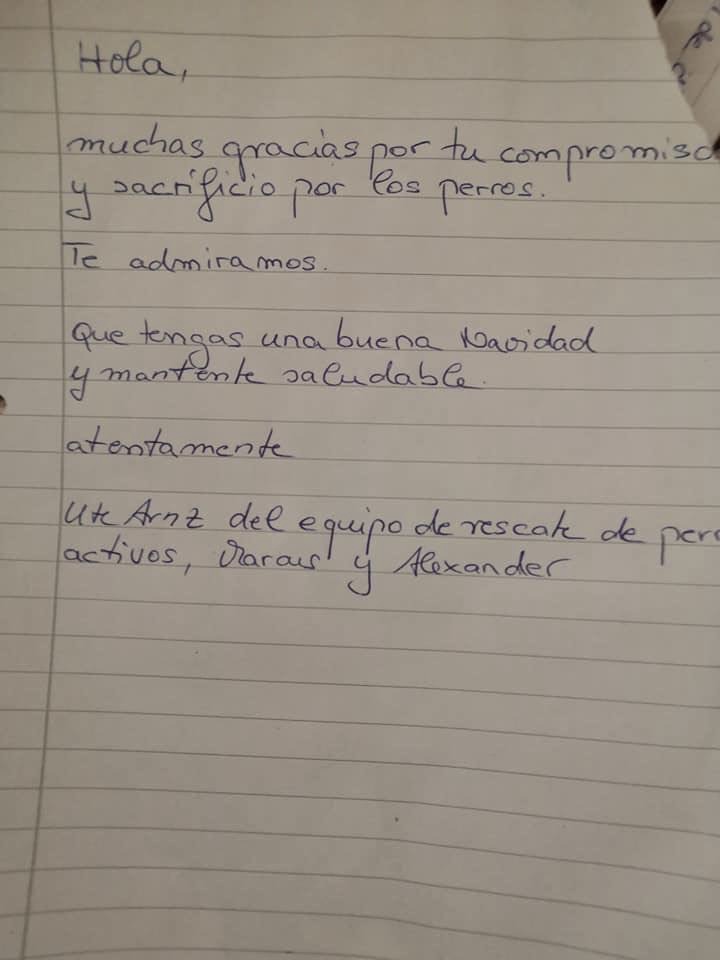 Hola,
muchas gracias por tu compromiso
y sacrificio por los perros.
Te admiramos.
Que tengas una buena Navidad
y mantente saludable.
atentamente
Ute Arnz del equipo de rescate de perr
activos, y Alexander